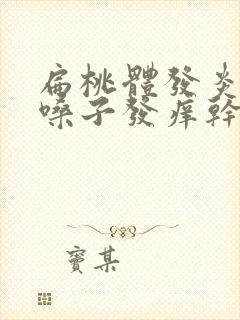 扁桃體發炎
嗓子發癢幹
竇某